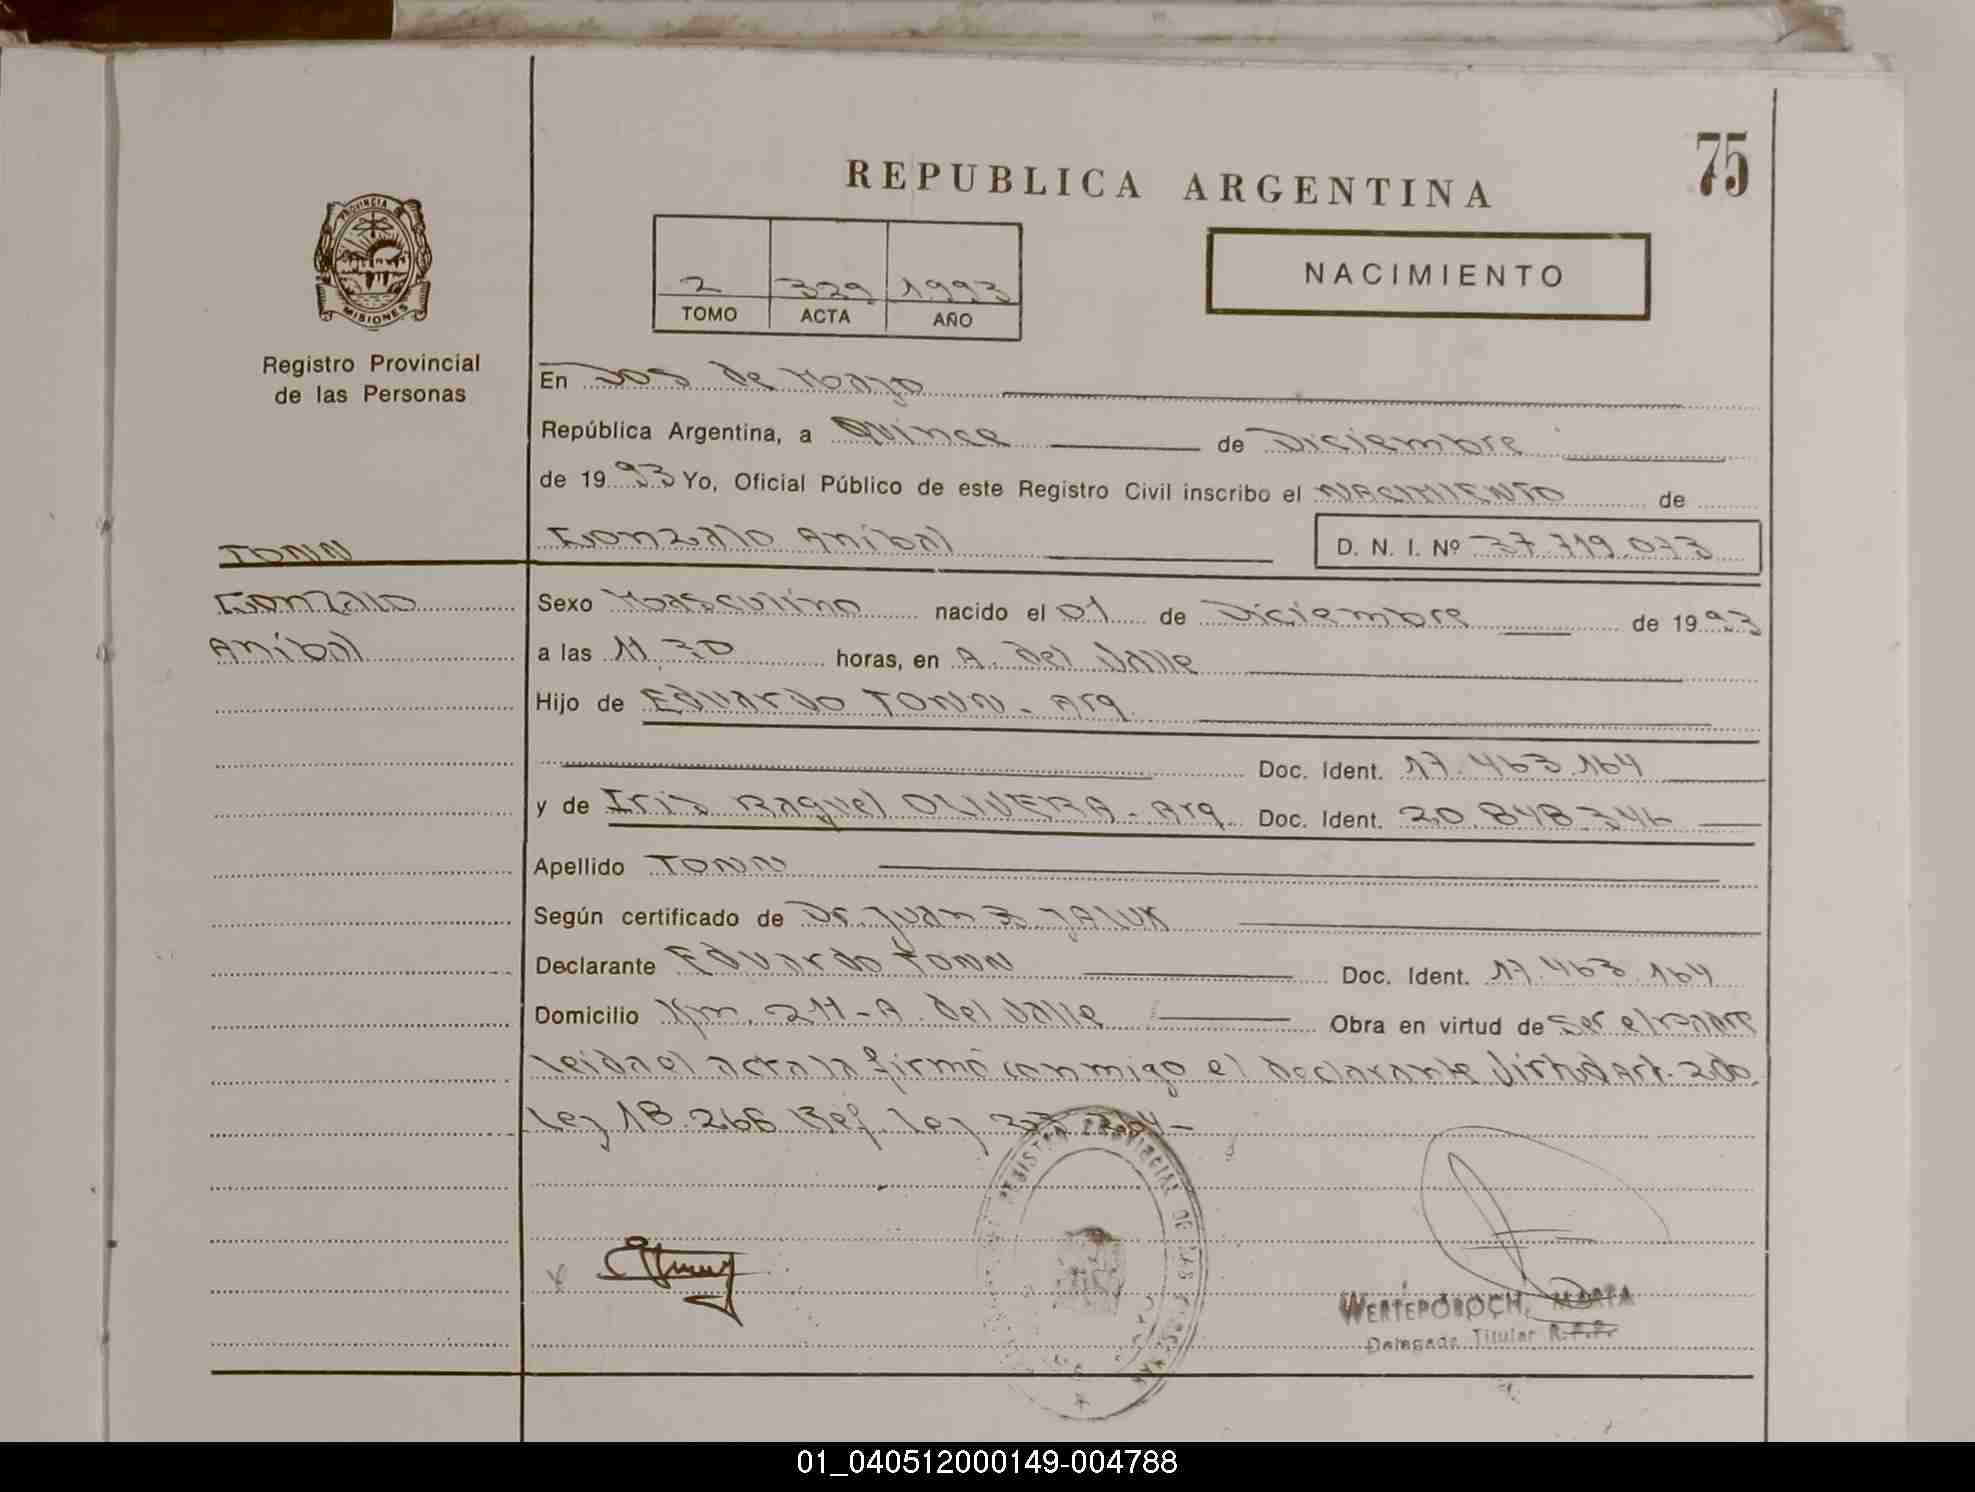 75
REPUBLICA ARGENTINA
PROVINCIA
MISIONES
Registro Provincial
de las Personas
2 329 1993
TOMO ACTA AÑO
NACIMIENTO
En Dos de Mayo
República Argentina, a Quince de Diciembre
de 1993 Yo, Oficial Público de este Registro Civil inscribo el NACIMIENTO de
Gonzalo Anibal D. N. I. Nº 37.719.073
TONN
Gonzalo
Anibal
Sexo Masculino nacido el 01 de Diciembre de 1993
a las 11,30 horas, en A. del Valle
Hijo de Eduardo TONN - Arg.
Doc. Ident. 17.463.164
y de Iris Raquel OLIVERA - Arg. Doc. Ident. 20.848.346
Apellido TONN
Según certificado de Dr. Juan B. JALUK
Declarante Eduardo TONN Doc. Ident. 17.463.164
Domicilio Km. 211 - A. del Valle Obra en virtud de Ser el Padre
leida el acta la firmó conmigo el declarante Virtud Art. 2do.
Ley 18.266 Ref. Ley
REGISTRO PROVINCIAL DE LAS PERSONAS
WERTEPOROCH, MARTA
Delegada Titular R.P.P.
01_040512000149-004788